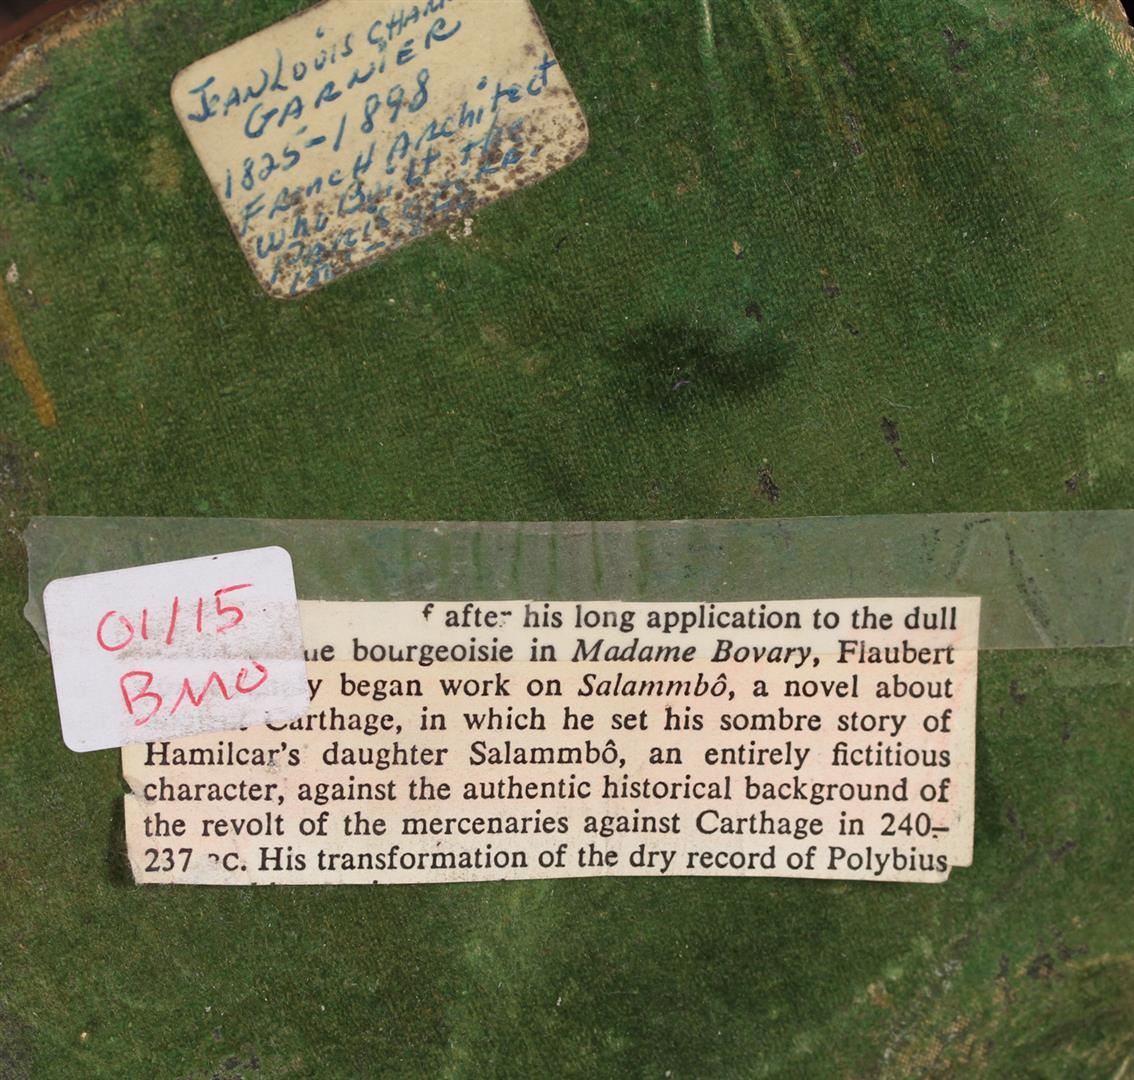 JEAN LOUIS
GARNIER
1825-1898
FRENCH ARCHITECT
WHO BUILT THE
PARIS
01/15
BMO
after his long application to the dull
bourgeoisie in Madame Bovary, Flaubert
began work on Salammbô, a novel about
Carthage, in which he set his sombre story of
Hamilcar's daughter Salammbô, an entirely fictitious
character, against the authentic historical background of
the revolt of the mercenaries against Carthage in 240–
237 BC. His transformation of the dry record of Polybius